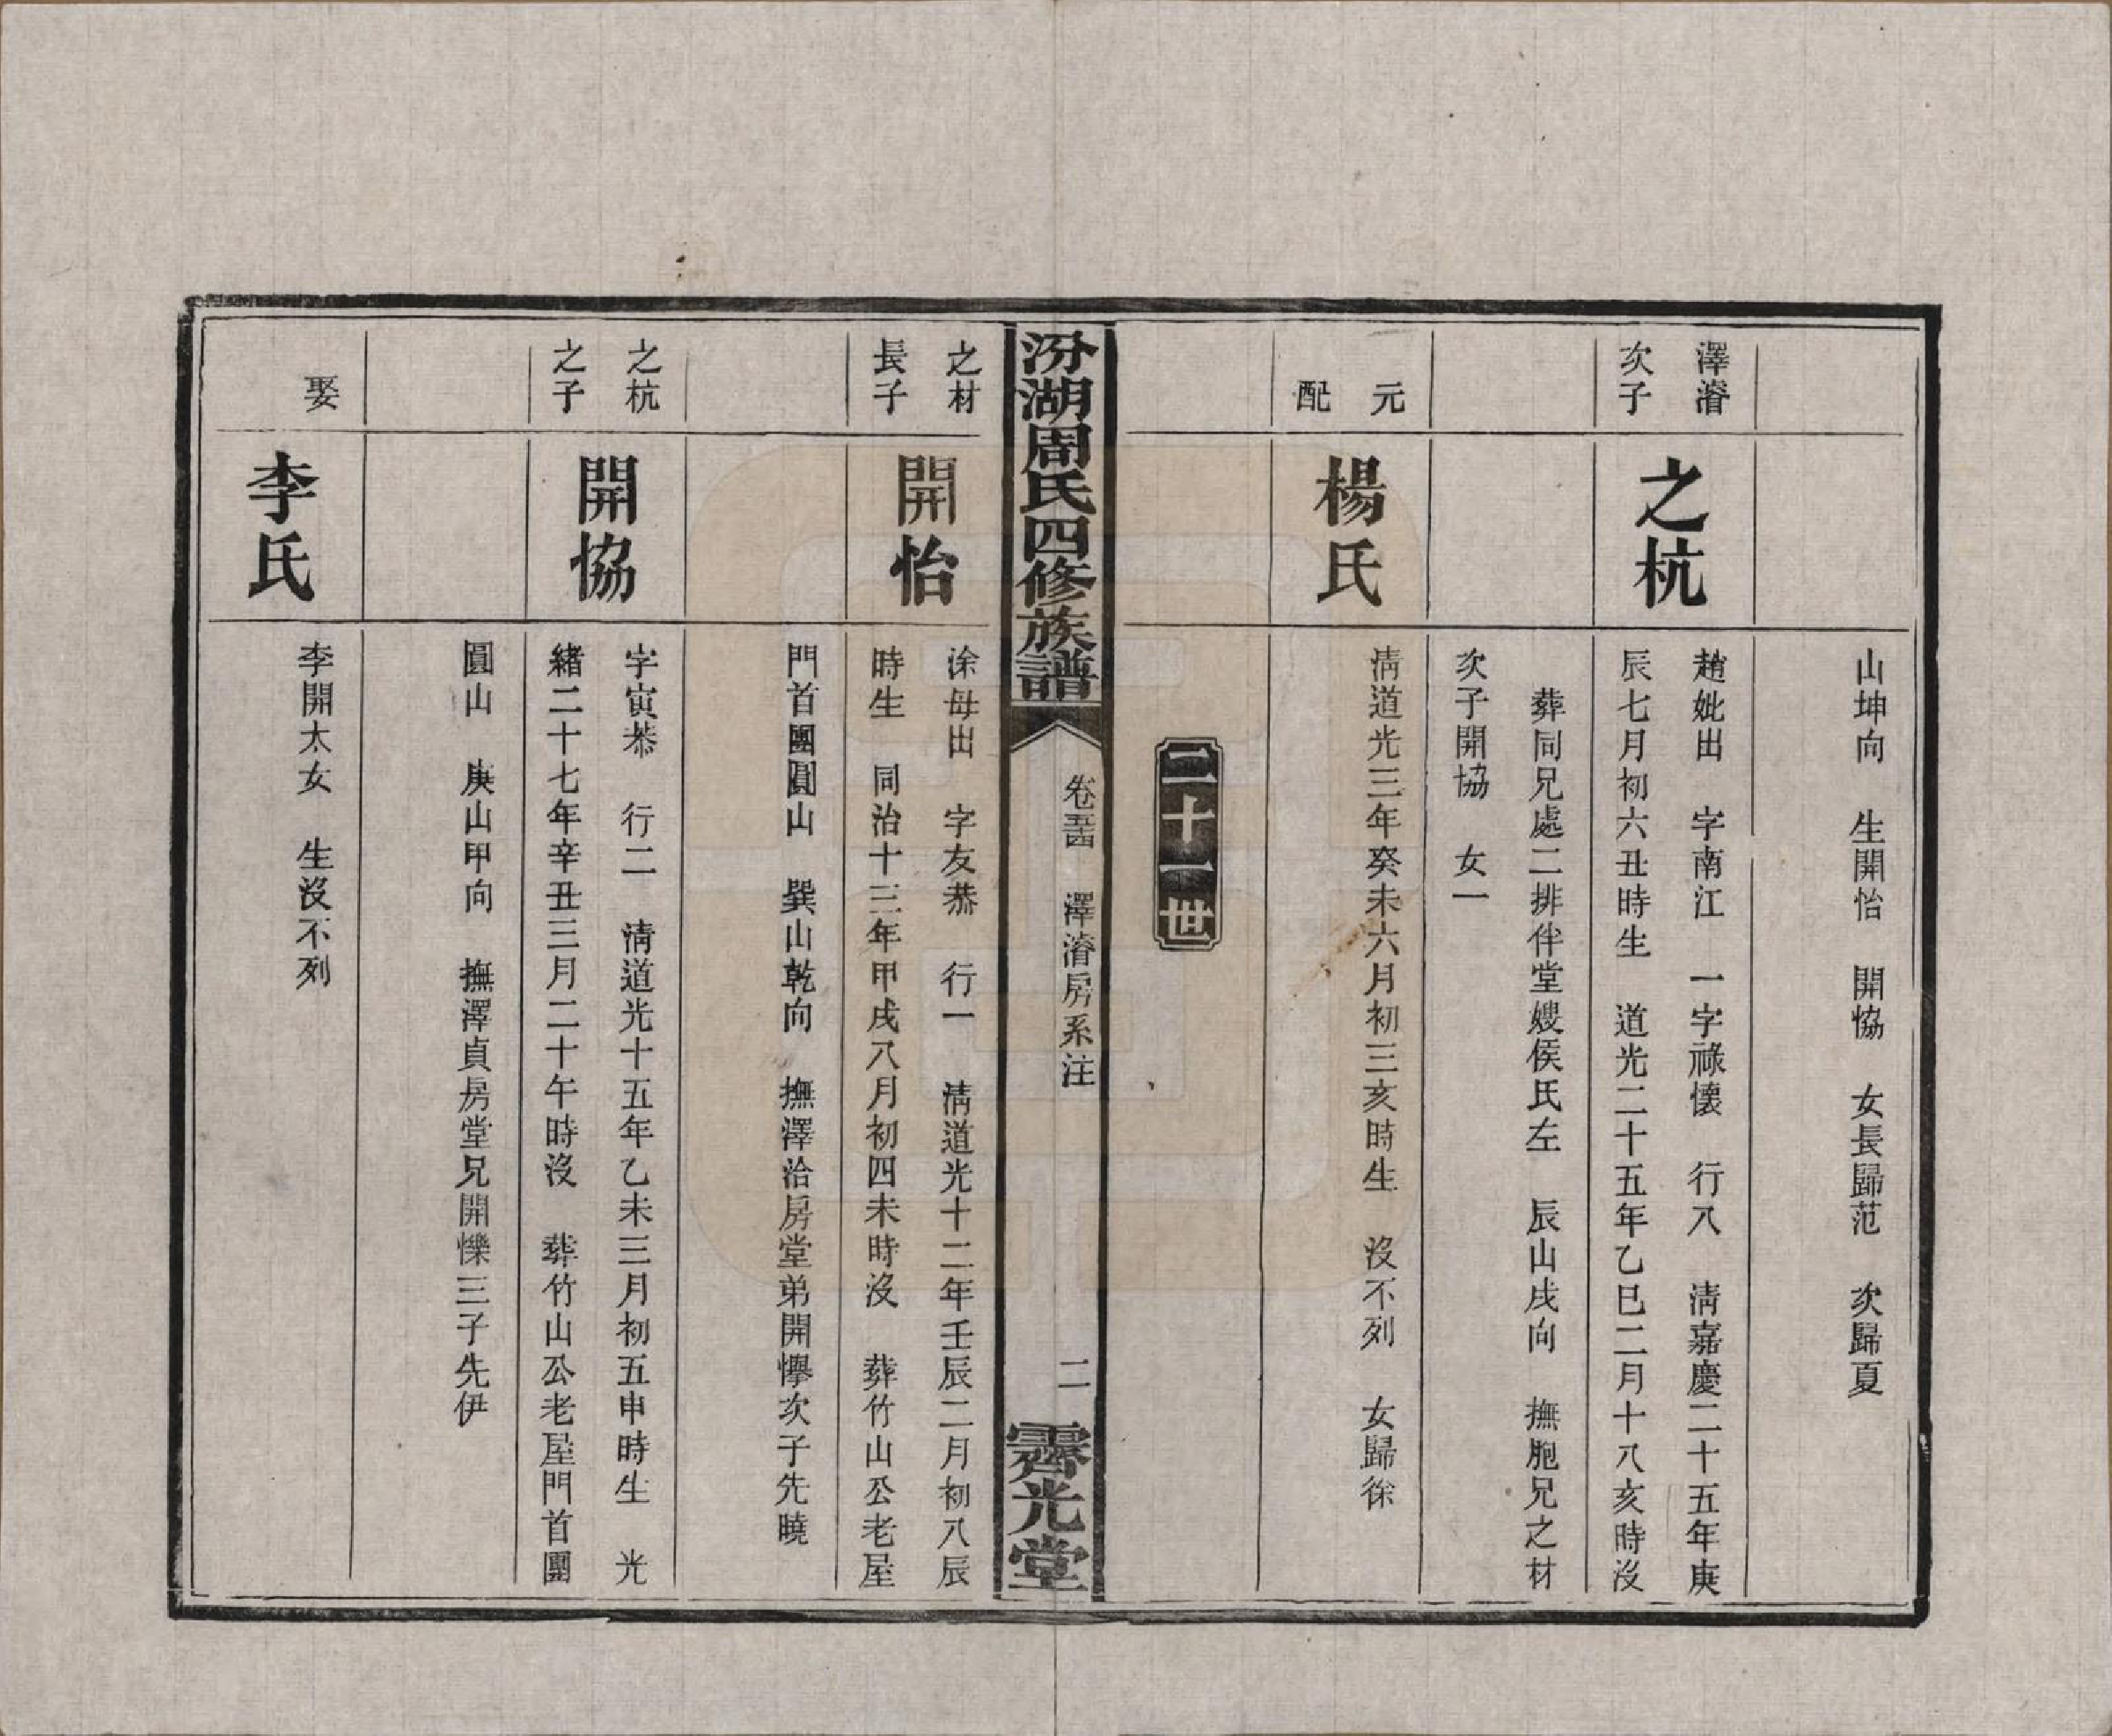 山坤向　生開怡　開協　女長歸范　次歸夏
澤濬
次子
之杭
趙妣出　字南江　一字祿懷　行八　清嘉慶二十五年庚
辰七月初六丑時生　道光二十五年乙巳二月十八亥時沒
葬同兄處二排伴堂嫂侯氏左　辰山戌向　撫胞兄之材
次子開協　女一
元
配
楊氏
清道光三年癸未六月初三亥時生　沒不列　女歸徐
二十一世
汾湖周氏四修族譜
卷　澤濬房系注
二
霽光堂
之材
長子
開怡
涂母出　字友恭　行一　清道光十二年壬辰二月初八辰
時生　同治十三年甲戌八月初四未時沒　葬竹山公老屋
門首團圓山　巽山乾向　撫澤洽房堂弟開懌次子先曉
之杭
之子
開協
字寅恭　行二　清道光十五年乙未三月初五申時生　光
緒二十七年辛丑三月二十午時沒　葬竹山公老屋門首團
圓山　庚山甲向　撫澤貞房堂兄開㦡三子先伊
娶
李氏
李開太女　生沒不列